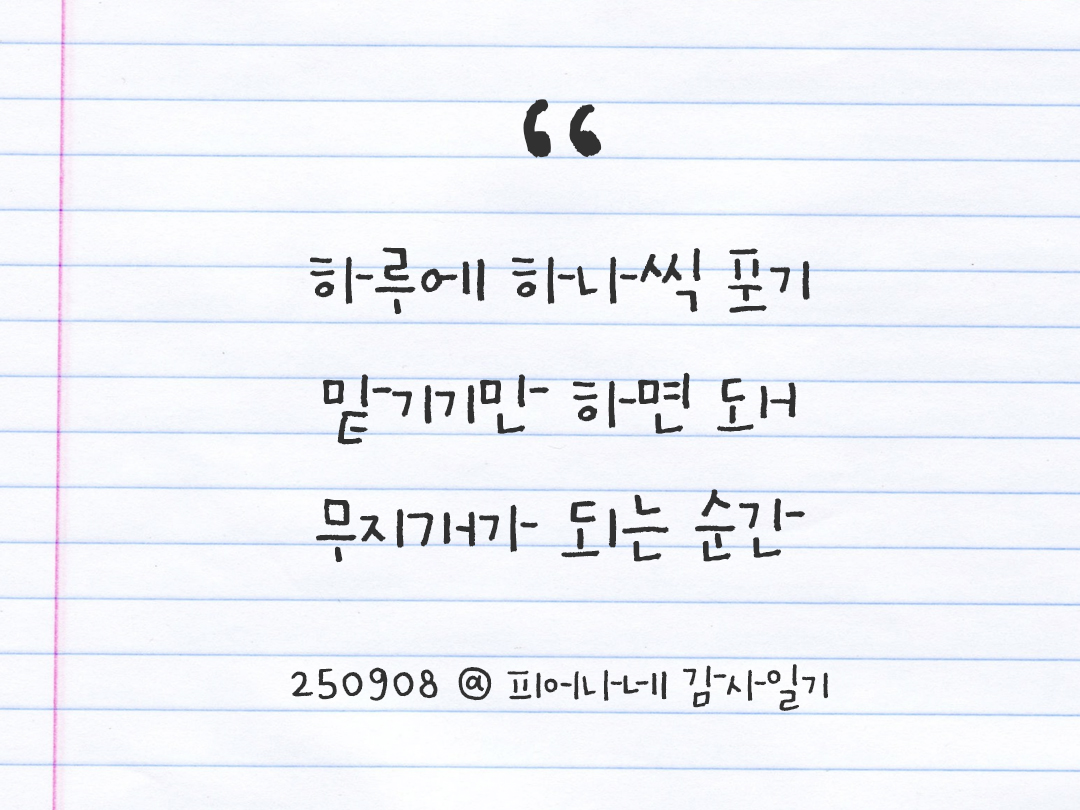 “
하루에 하나씩 포기
맡기기만 하면 돼
무지개가 되는 순간
250908 @ 피어나네 감사일기